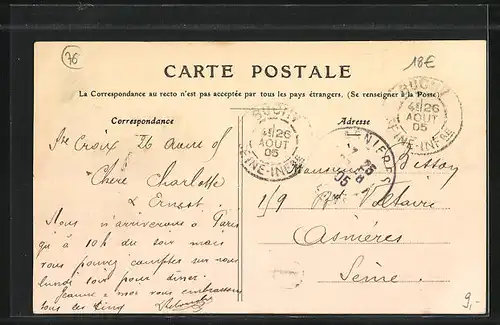 76
18€
CARTE POSTALE
La Correspondance au recto n'est pas acceptée par tous les pays étrangers. (Se renseigner à la Poste)
Correspondance
Adresse
BUCHY
4E 26
AOUT
05
SEINE-INFRE
BUCHY
4E 26
AOUT
05
SEINE-INFRE
Ste Croix 26 Aout 05
Chère Charlotte
& Ernest
Nous n'arriverons à Paris
qu'à 10h du soir mais
vous pouvez compter sur nous
lundi soir pour diner.
Jeanne & moi vous embrassons
tous les cinq
Monsieur Bisson
1/9 Voltaire
Asnières
Seine
9,-